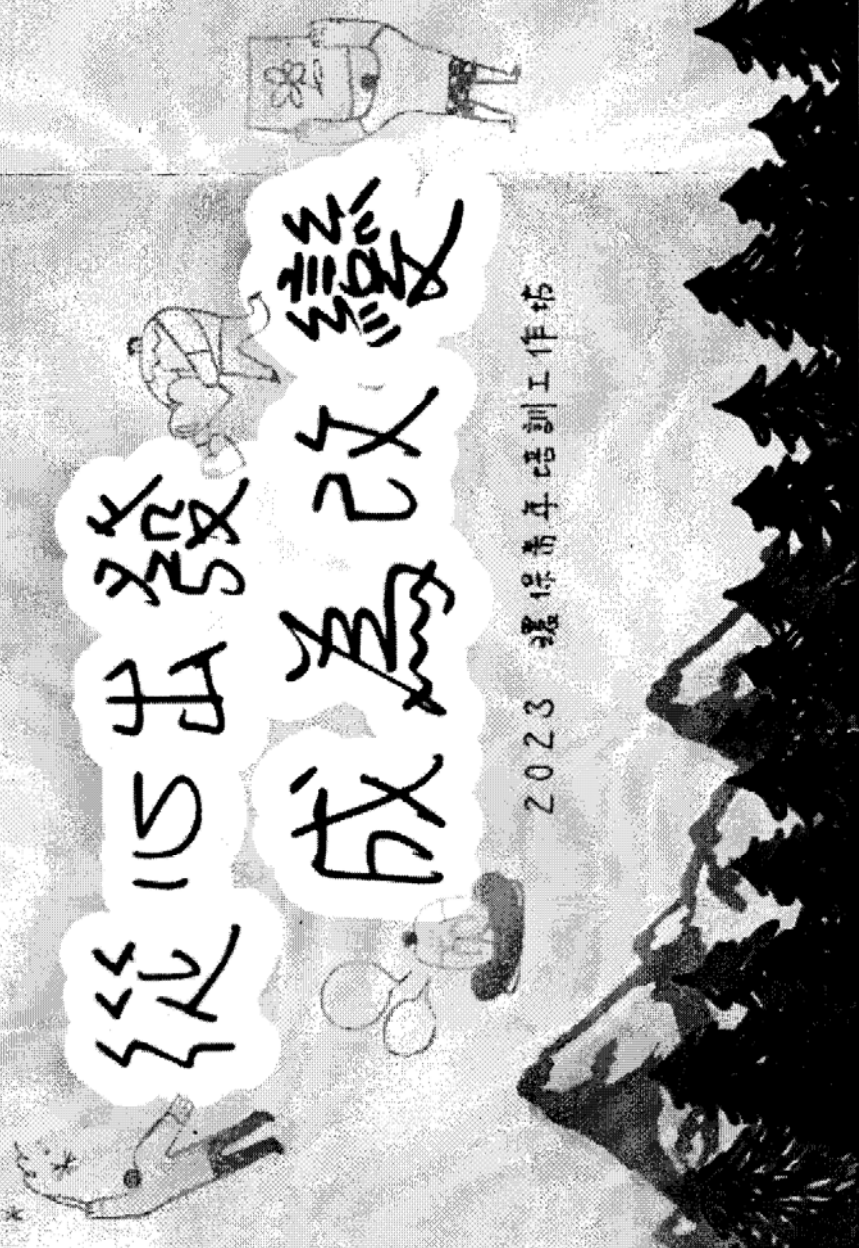 從心出發
成為改變
2023 環保青年培訓工作坊